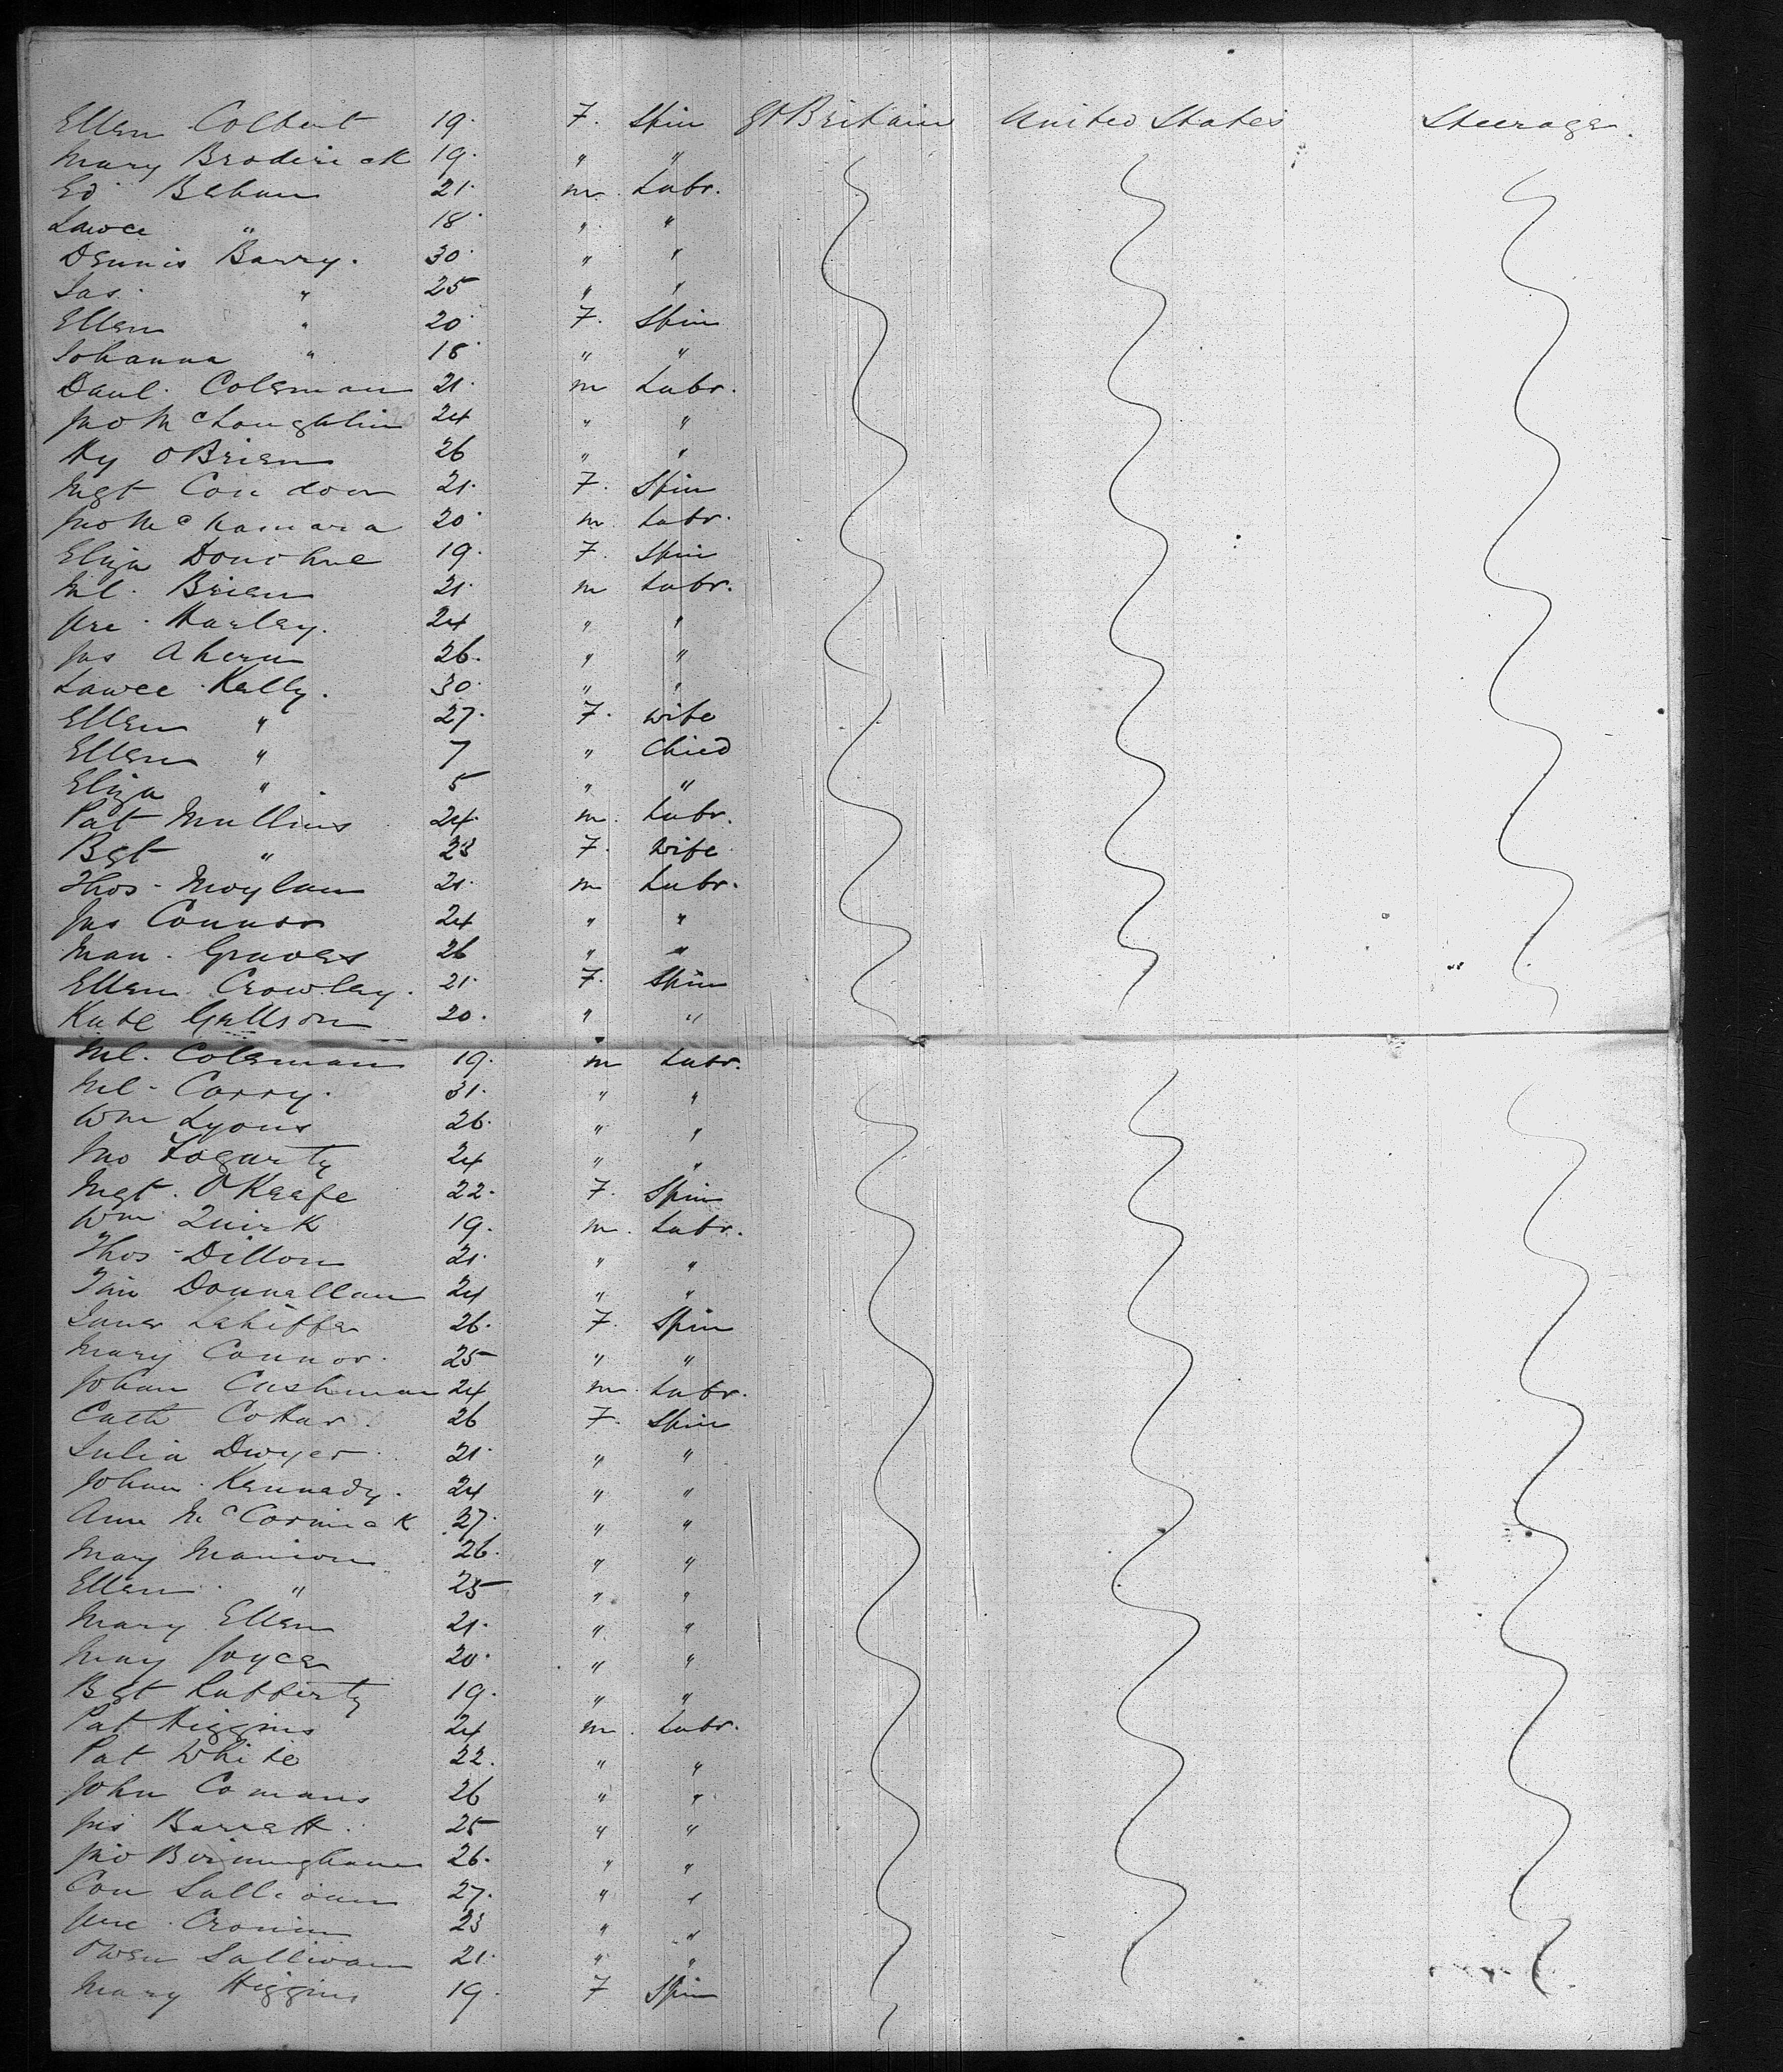 Ellen Colbert 19. F. Spin Gt Britain United States Steerage.
Mary Broderick 19. " "
Ed Behan 21. m. Labr.
Lawce " 18. " "
Dennis Barry. 30. " "
Jas. " 25 " "
Ellen " 20 F. Spin
Johanna " 18 " "
Danl. Coleman 21. m Labr.
Jno McLoughlin 24 " "
Hy OBrien 26 " "
Mgt Condon 21. F. Spin
Jno McNamara 20 m. Labr.
Eliza Donohue 19. F. Spin
Ml. Brien 21. m Labr.
Jre. Harley. 24 " "
Jas Ahern 26. " "
Lawce Kelly. 30. " "
Ellen " 27. F. wife
Ellen " 7 " Child
Eliza " 5 " "
Pat Mullins 24. m. Labr.
Bgt " 23 F. Wife
Thos - Moylan 21. m Labr.
Jas Connor 24 " "
Man. Graves 26 " "
Ellen Crowley. 21. F. Spin
Kate Gallson 20. " "
Ml. Coleman 19. m Labr.
Ml - Carry. 31. " "
Wm Lyons 26. " "
Jno Fogarty 24 " "
Mgt. OKeefe 22. F. Spin
Wm Quirk 19. m. Labr.
Thos - Dillon 21. " "
Tim Donnellan 24 " "
Lahiffe 26. F. Spin
Mary Connor. 25 " "
Johan Cashman 24 m. Labr.
Cath Cottar. 26 F. Spin
Julia Dwyer. 21. " "
Johan Kennedy. 24 " "
Ann McCormick 27. " "
Mary Manion 26. " "
Ellen " 25 " "
Mary Ellen 21. " "
May Joyce 20. " "
Bgt Rafferty 19. " "
Pat Higgins 24 m. Labr.
Pat White 22. " "
John Comans 26 " "
Jas Barrett. 25 " "
Jno Birmingham 26. " "
Con Sullivan 27. " "
Jre. Cronin 23 " "
Owen Sullivan 21. " "
Mary Higgins 19. F Spin